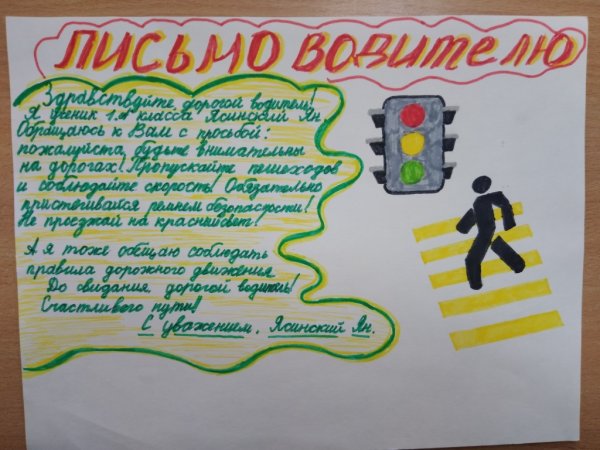 ПИСЬМО ВОДИТЕЛЮ
Здравствуйте, дорогой водитель!
Я ученик 1 "А" класса Ясинский Ян.
Обращаюсь к Вам с просьбой:
пожалуйста, будьте внимательны
на дорогах! Пропускайте пешеходов
и соблюдайте скорость! Обязательно
пристегивайся ремнем безопасности!
Не проезжай на красный свет!
А я тоже обещаю соблюдать
правила дорожного движения.
До свидания, дорогой водитель!
Счастливого пути!
С уважением, Ясинский Ян.